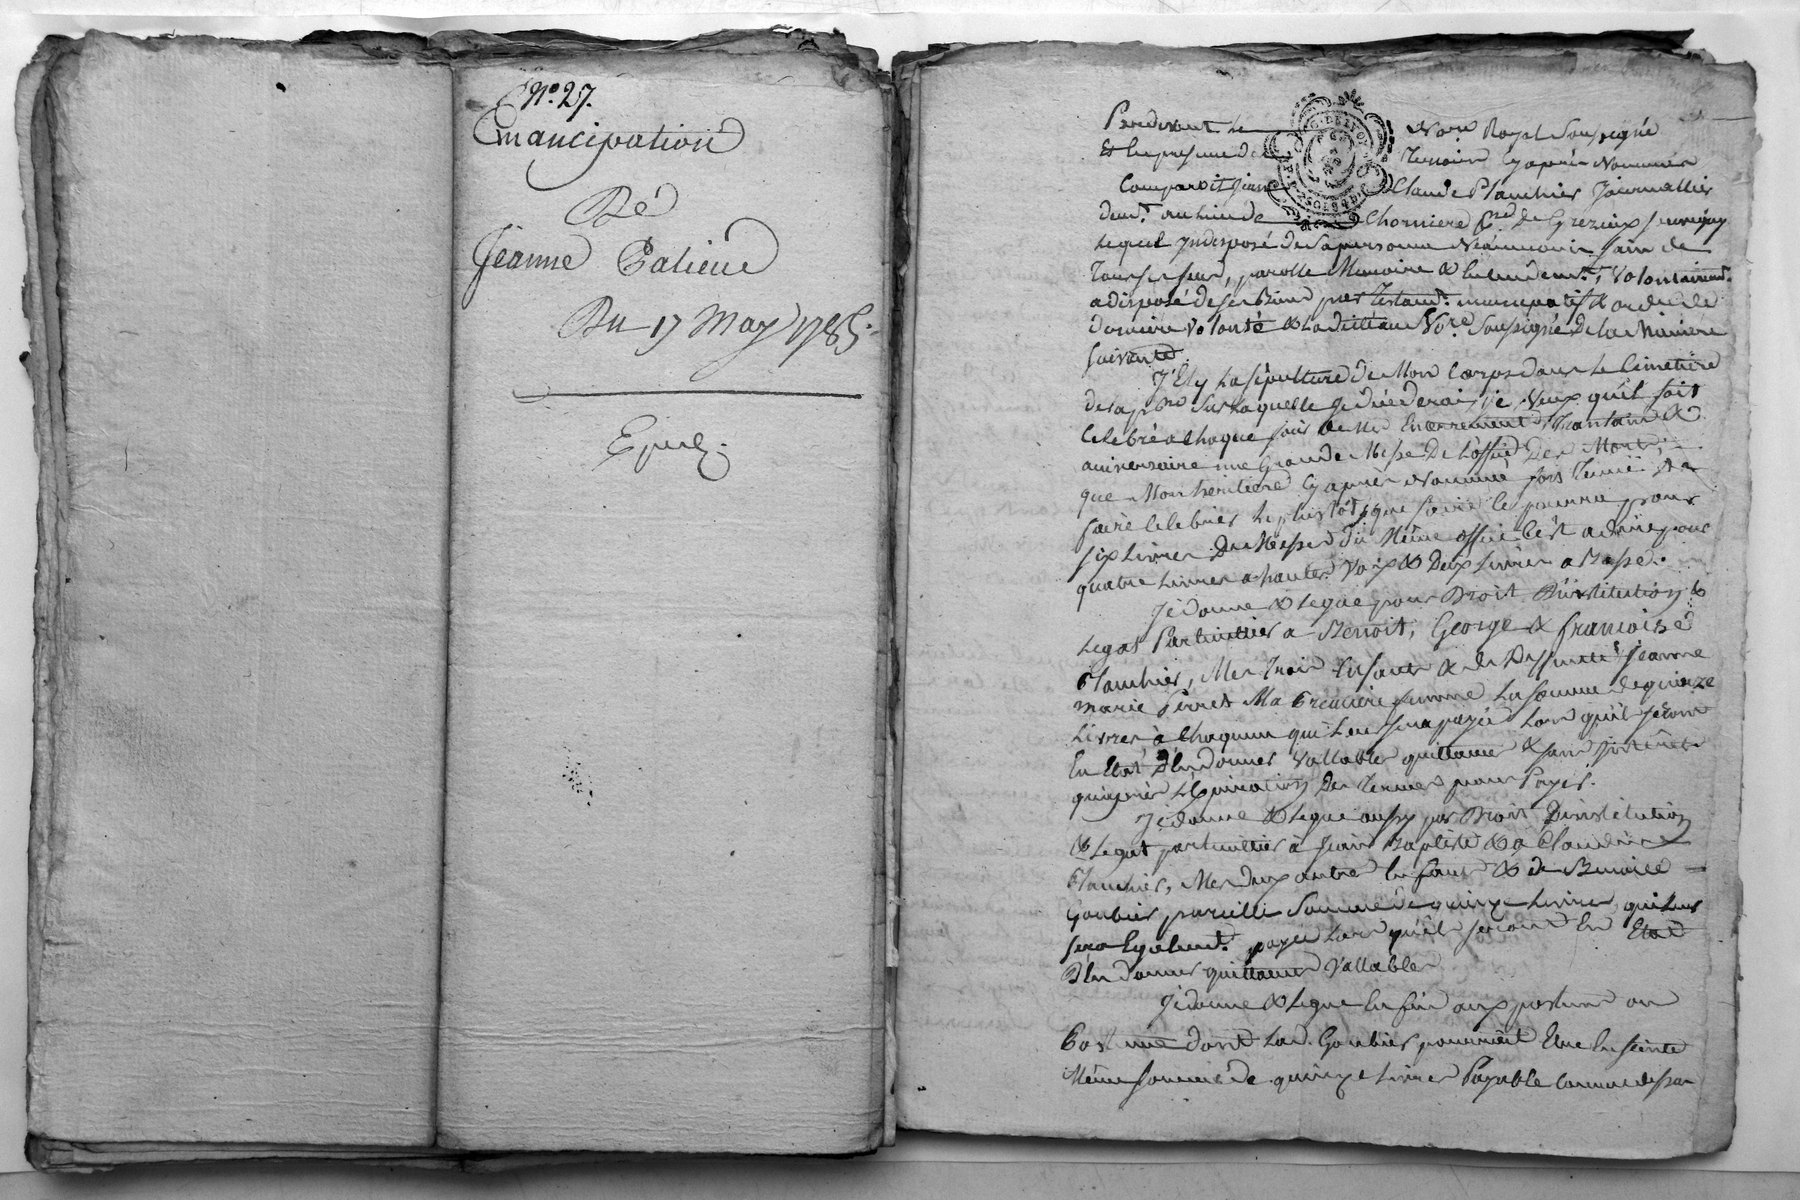 N.º 27.
Emancipation
De
Jeanne
Du 17 May 1785.
Pardevant le Nore. Royal Soussigné
Et en presence des Temoins Cy après Nommés
Comparoit Jean Claude Planchier Journallier
demt. au lieu de Chorniere
Lequel Indisposé de Sa personne Néanmoins Sain de
Tous ses sens, parolle Memoire & Entendemt., Volontairemt.
a disposé de ses Biens par Testamt. nuncupatif & ordre de
derniere Volonté & La Nore. Soussigné de la Maniere
Suivante
J'Ely La sépulture de Mon Corps dans Le Cimetiere
de la psse Sur Laquelle Je décéderai, Je Veux qu'il soit
Celebré a Chaque jour de Mes Enterrement, Trantain &
aniversaire une Grande Messe De L'offie Des Morts;
que Mon heritiere Cy après Nommée fois Tenüe de
faire Celebrer Le plustôt que faire Ce pourra pour
six Livres De Messes Du Même offie C'est a dire pour
quatre Livres a hautes Voix & Deux Livres a Basse.
Je donne & Legue pour Droit D'institution &
Legat Particullier a Benoit, George & francoise
Planchier, Mes Trois Enfants & de Deffunte Jeanne
marie Perret Ma Premiere femme La somme de quinze
Livres à Chaquun qui Leur sera payée Lors qu'il seront
En Etat D'En donner Vallables quittance & sans Interêt
qu'après L'Expiration Des Termes pour Payer.
Je donne & Legue aussy par Droit D'institution
& Legat particullier à Jean Baptiste & a Claudine
Planchier, Mes deux autre Enfans & de Benoite
Goubier pareille Somme de quinze Livres qui Leur
sera Egalemt. payée Lors qu'il seront En Etat
D'En donner quittance Vallables
Je donne & Legue En fin aux postume ou
Postume dont Lad. Goubier pourroit Etre Enseinte
Même somme de quinze Livres Payable comme dessus